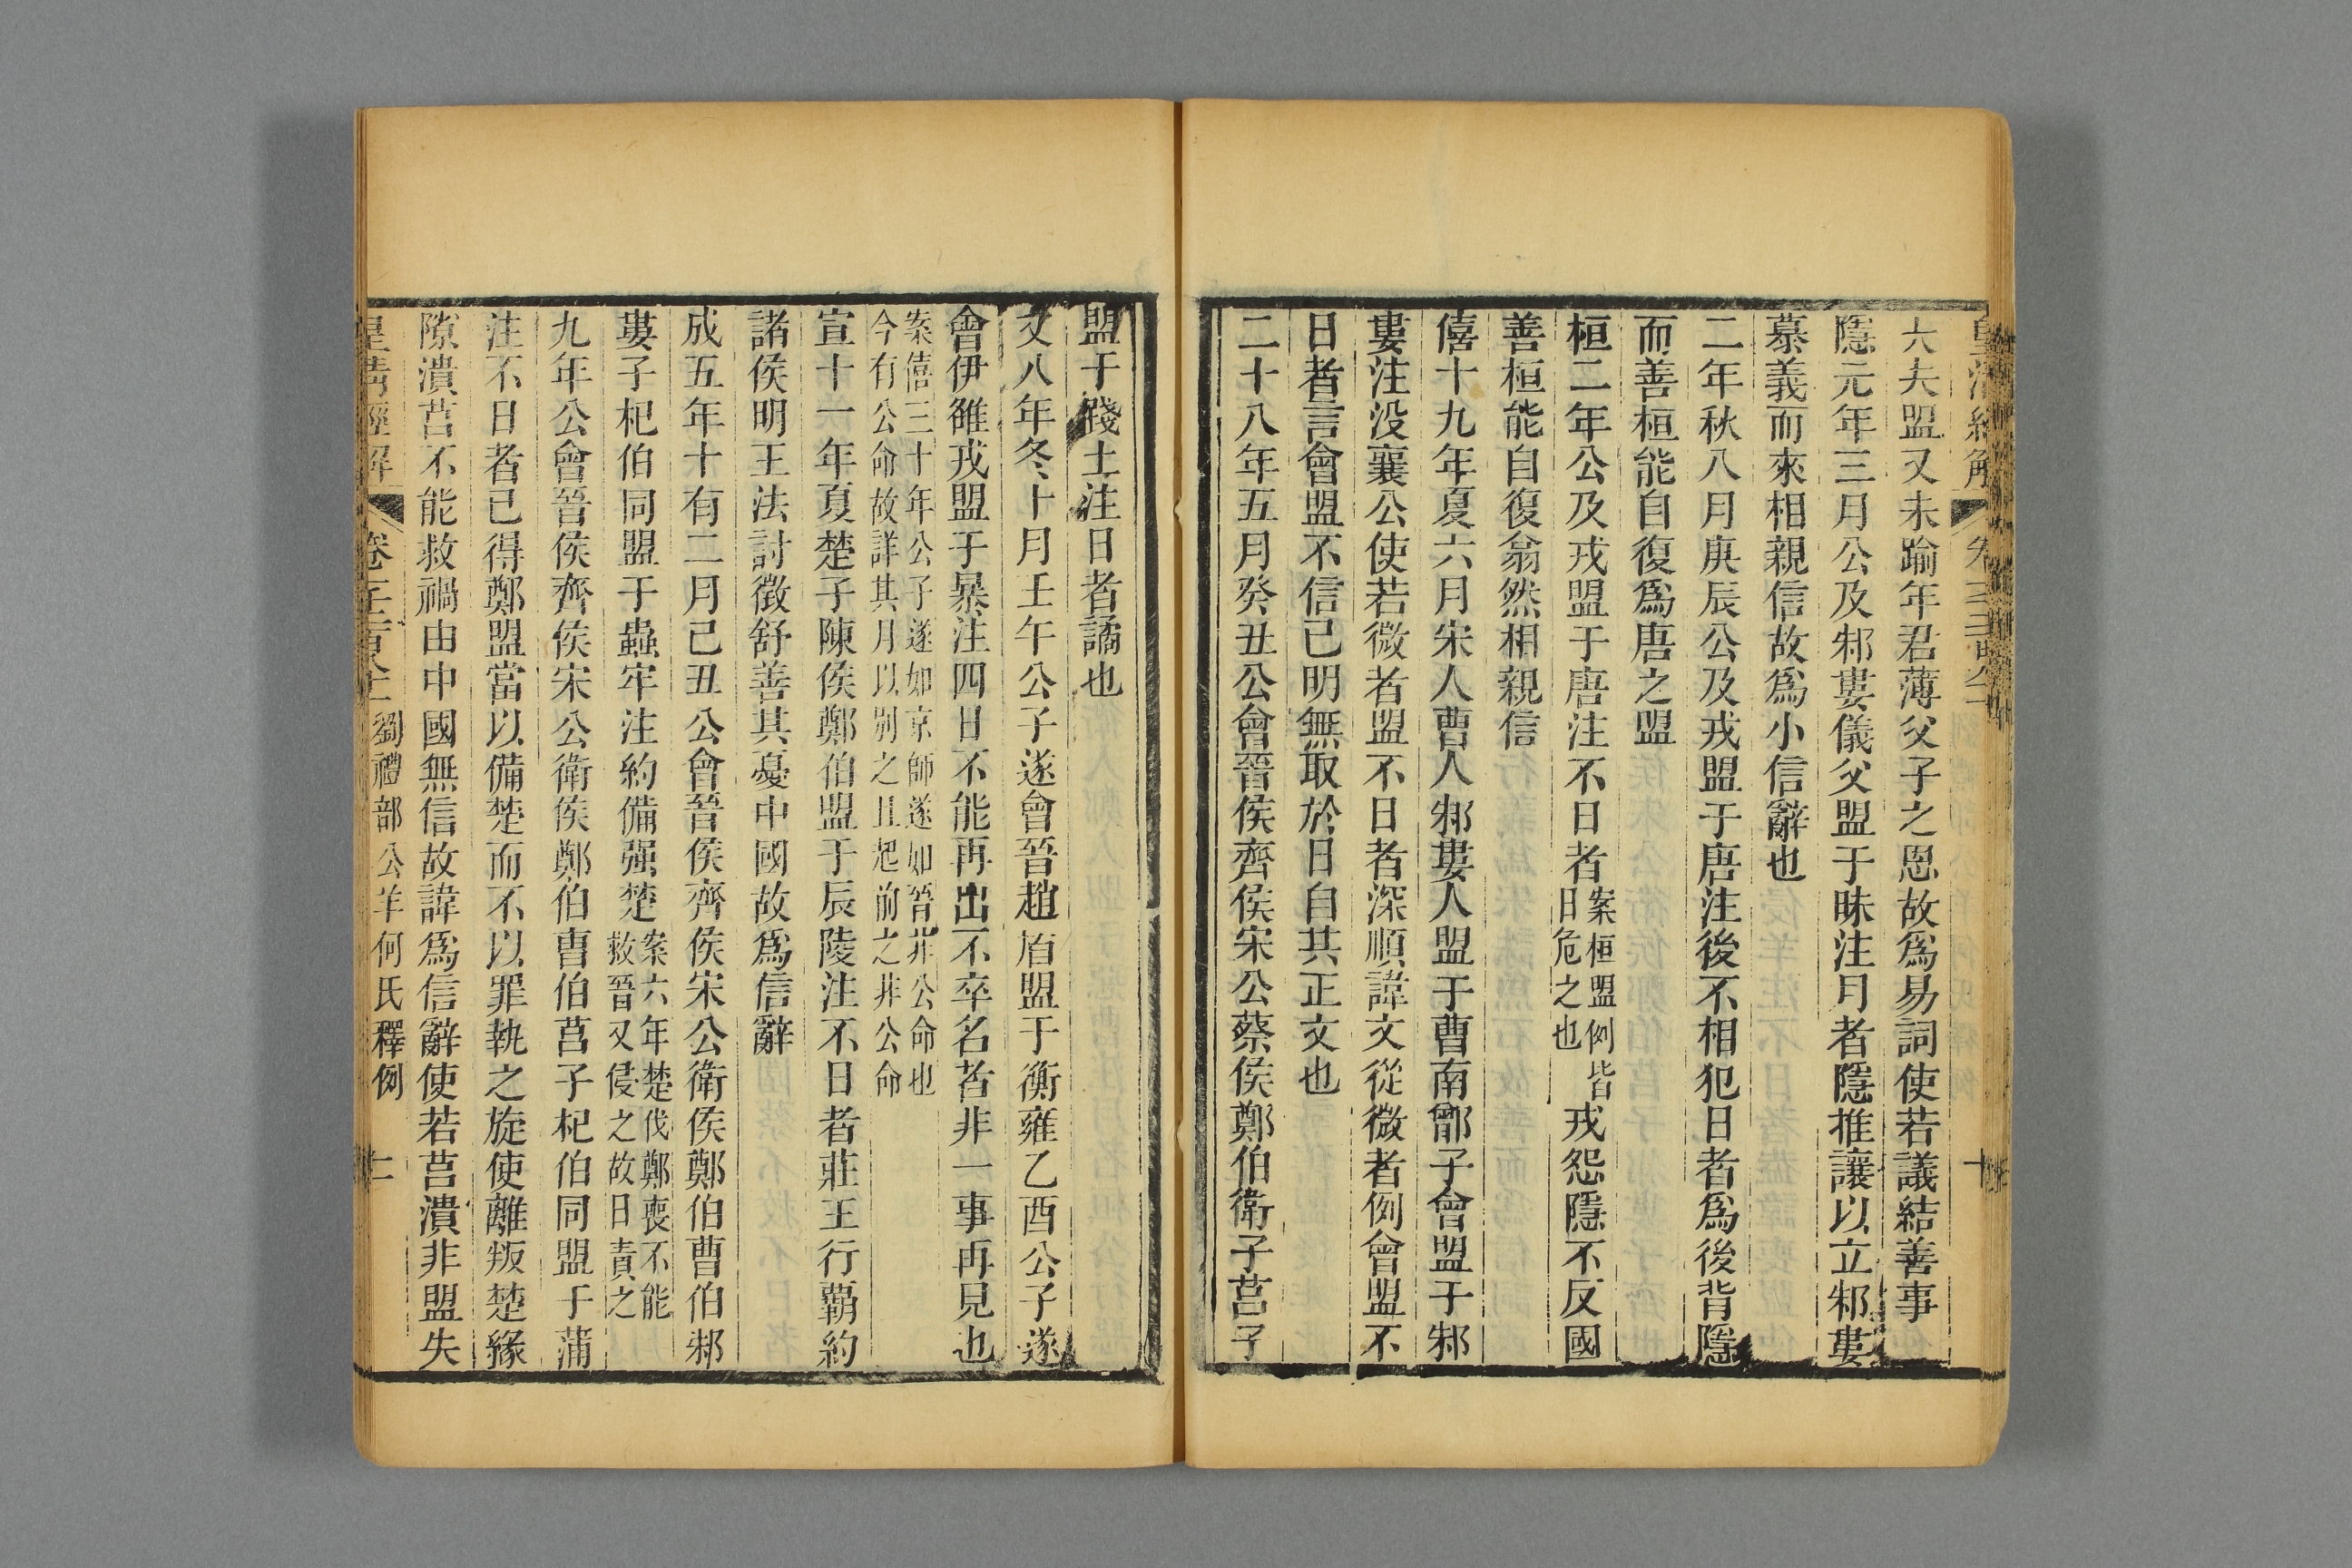 大夫盟又未踰年君薄父子之恩故爲易詞使若議結善事
隱元年三月公及邾婁儀父盟于昧注月者隱推讓以立邾婁
慕義而來相親信故爲小信辭也
二年秋八月庚辰公及戎盟于唐注後不相犯日者爲後背隱
而善桓能自復爲唐之盟
桓二年公及戎盟于唐注不日者案桓盟例皆日危之也戎怨隱不反國
善桓能自復翕然相親信
僖十九年夏六月宋人曹人邾婁人盟于曹南鄫子會盟于邾
婁注没襄公使若微者盟不日者深順諱文從微者例會盟不
日者言會盟不信已明無取於日自其正文也
二十八年五月癸丑公會晉侯齊侯宋公蔡侯鄭伯衛子莒子
盟于踐土注日者譎也
文八年冬十月壬午公子遂會晉趙盾盟于衡雍乙酉公子遂
會伊雒戎盟于暴注四日不能再出不卒名者非一事再見也
案僖三十年公子遂如京師遂如晉非公命也
今有公命故詳其月以別之且起前之非公命
宣十一年夏楚子陳侯鄭伯盟于辰陵注不日者莊王行霸約
諸侯明王法討徵舒善其憂中國故爲信辭
成五年十有二月己丑公會晉侯齊侯宋公衛侯鄭伯曹伯邾
婁子杞伯同盟于蟲牢注約備强楚案六年楚伐鄭喪不能救晉又侵之故日責之
九年公會晉侯齊侯宋公衛侯鄭伯曹伯莒子杞伯同盟于蒲
注不日者已得鄭盟當以備楚而不以罪執之旋使離叛楚緣
隙潰莒不能救禍由中國無信故諱爲信辭使若莒潰非盟失
皇淸經解 卷 劉禮部公羊何氏釋例